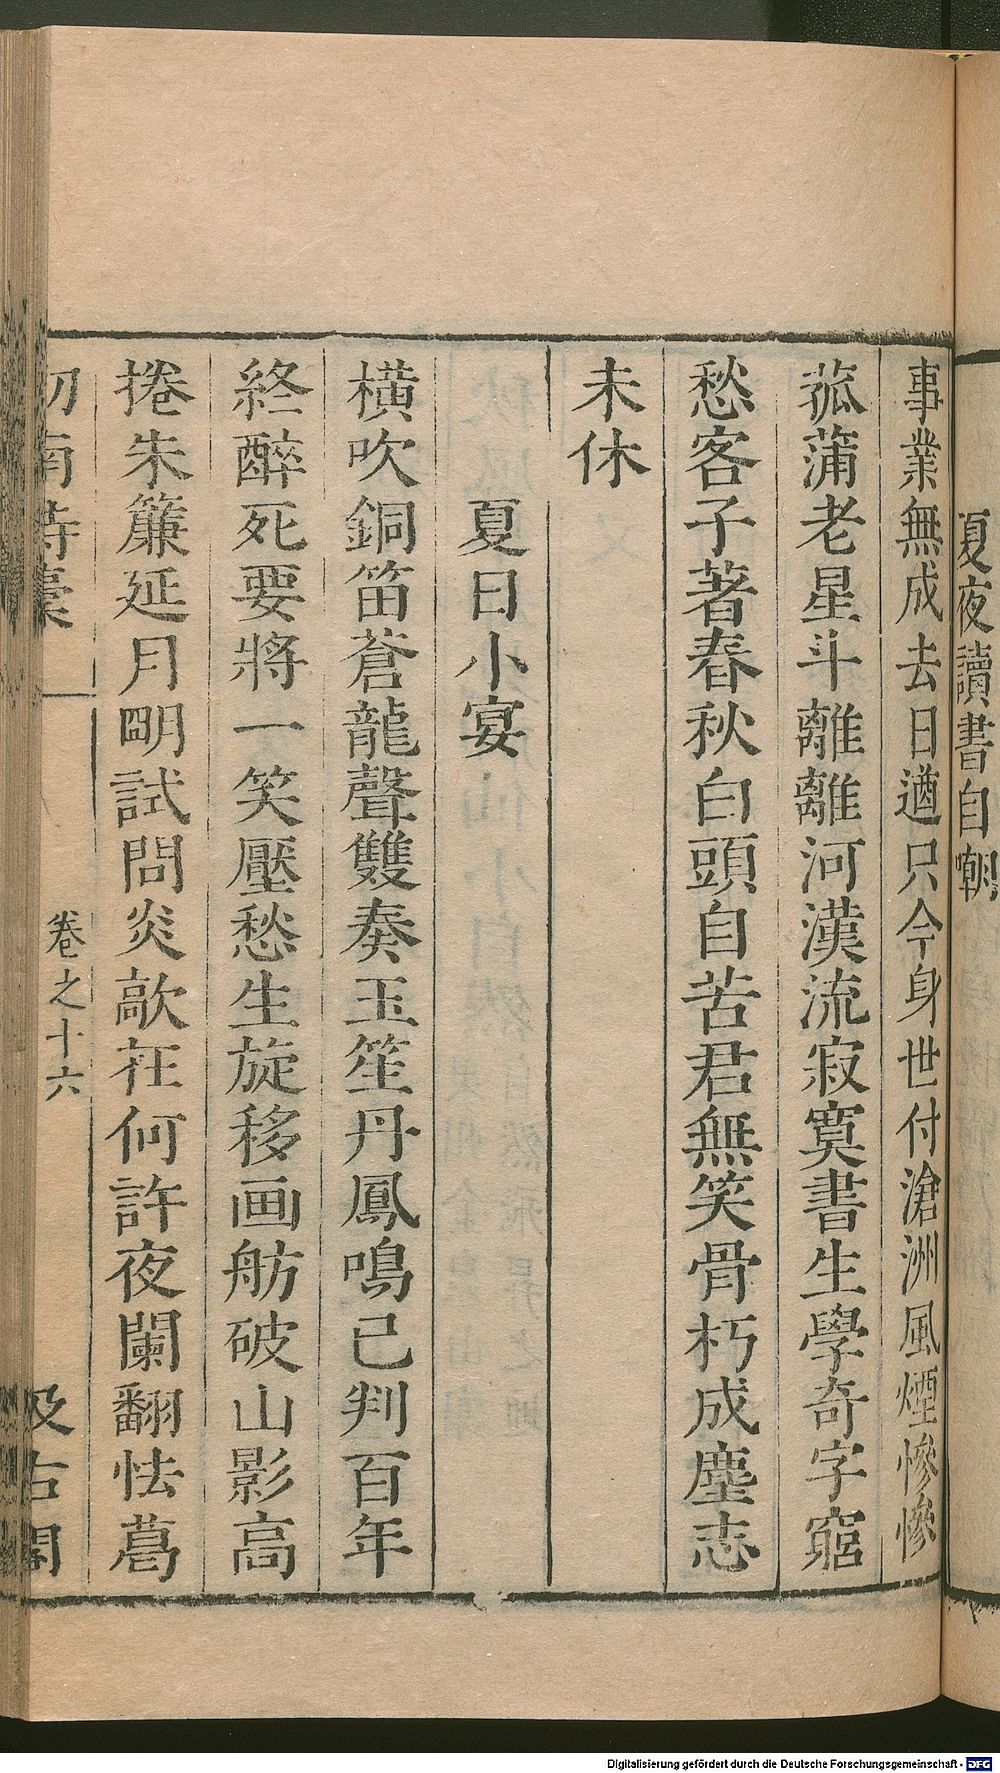 夏夜讀書自嘲
事業無成去日遒只今身世付滄洲風煙慘慘
菰蒲老星斗離離河漢流寂寞書生學奇字窮
愁客子著春秋白頭自苦君無笑骨朽成塵志
未休
夏日小宴
橫吹銅笛蒼龍聲雙奏玉笙丹鳳鳴已判百年
終醉死要將一笑壓愁生旋移画舫破山影高
捲朱簾延月朙試問炎歊在何許夜闌翻怯葛
劎南詩稾 卷之十六 汲古閣
Digitalisierung gefördert durch die Deutsche Forschungsgemeinschaft - DFG